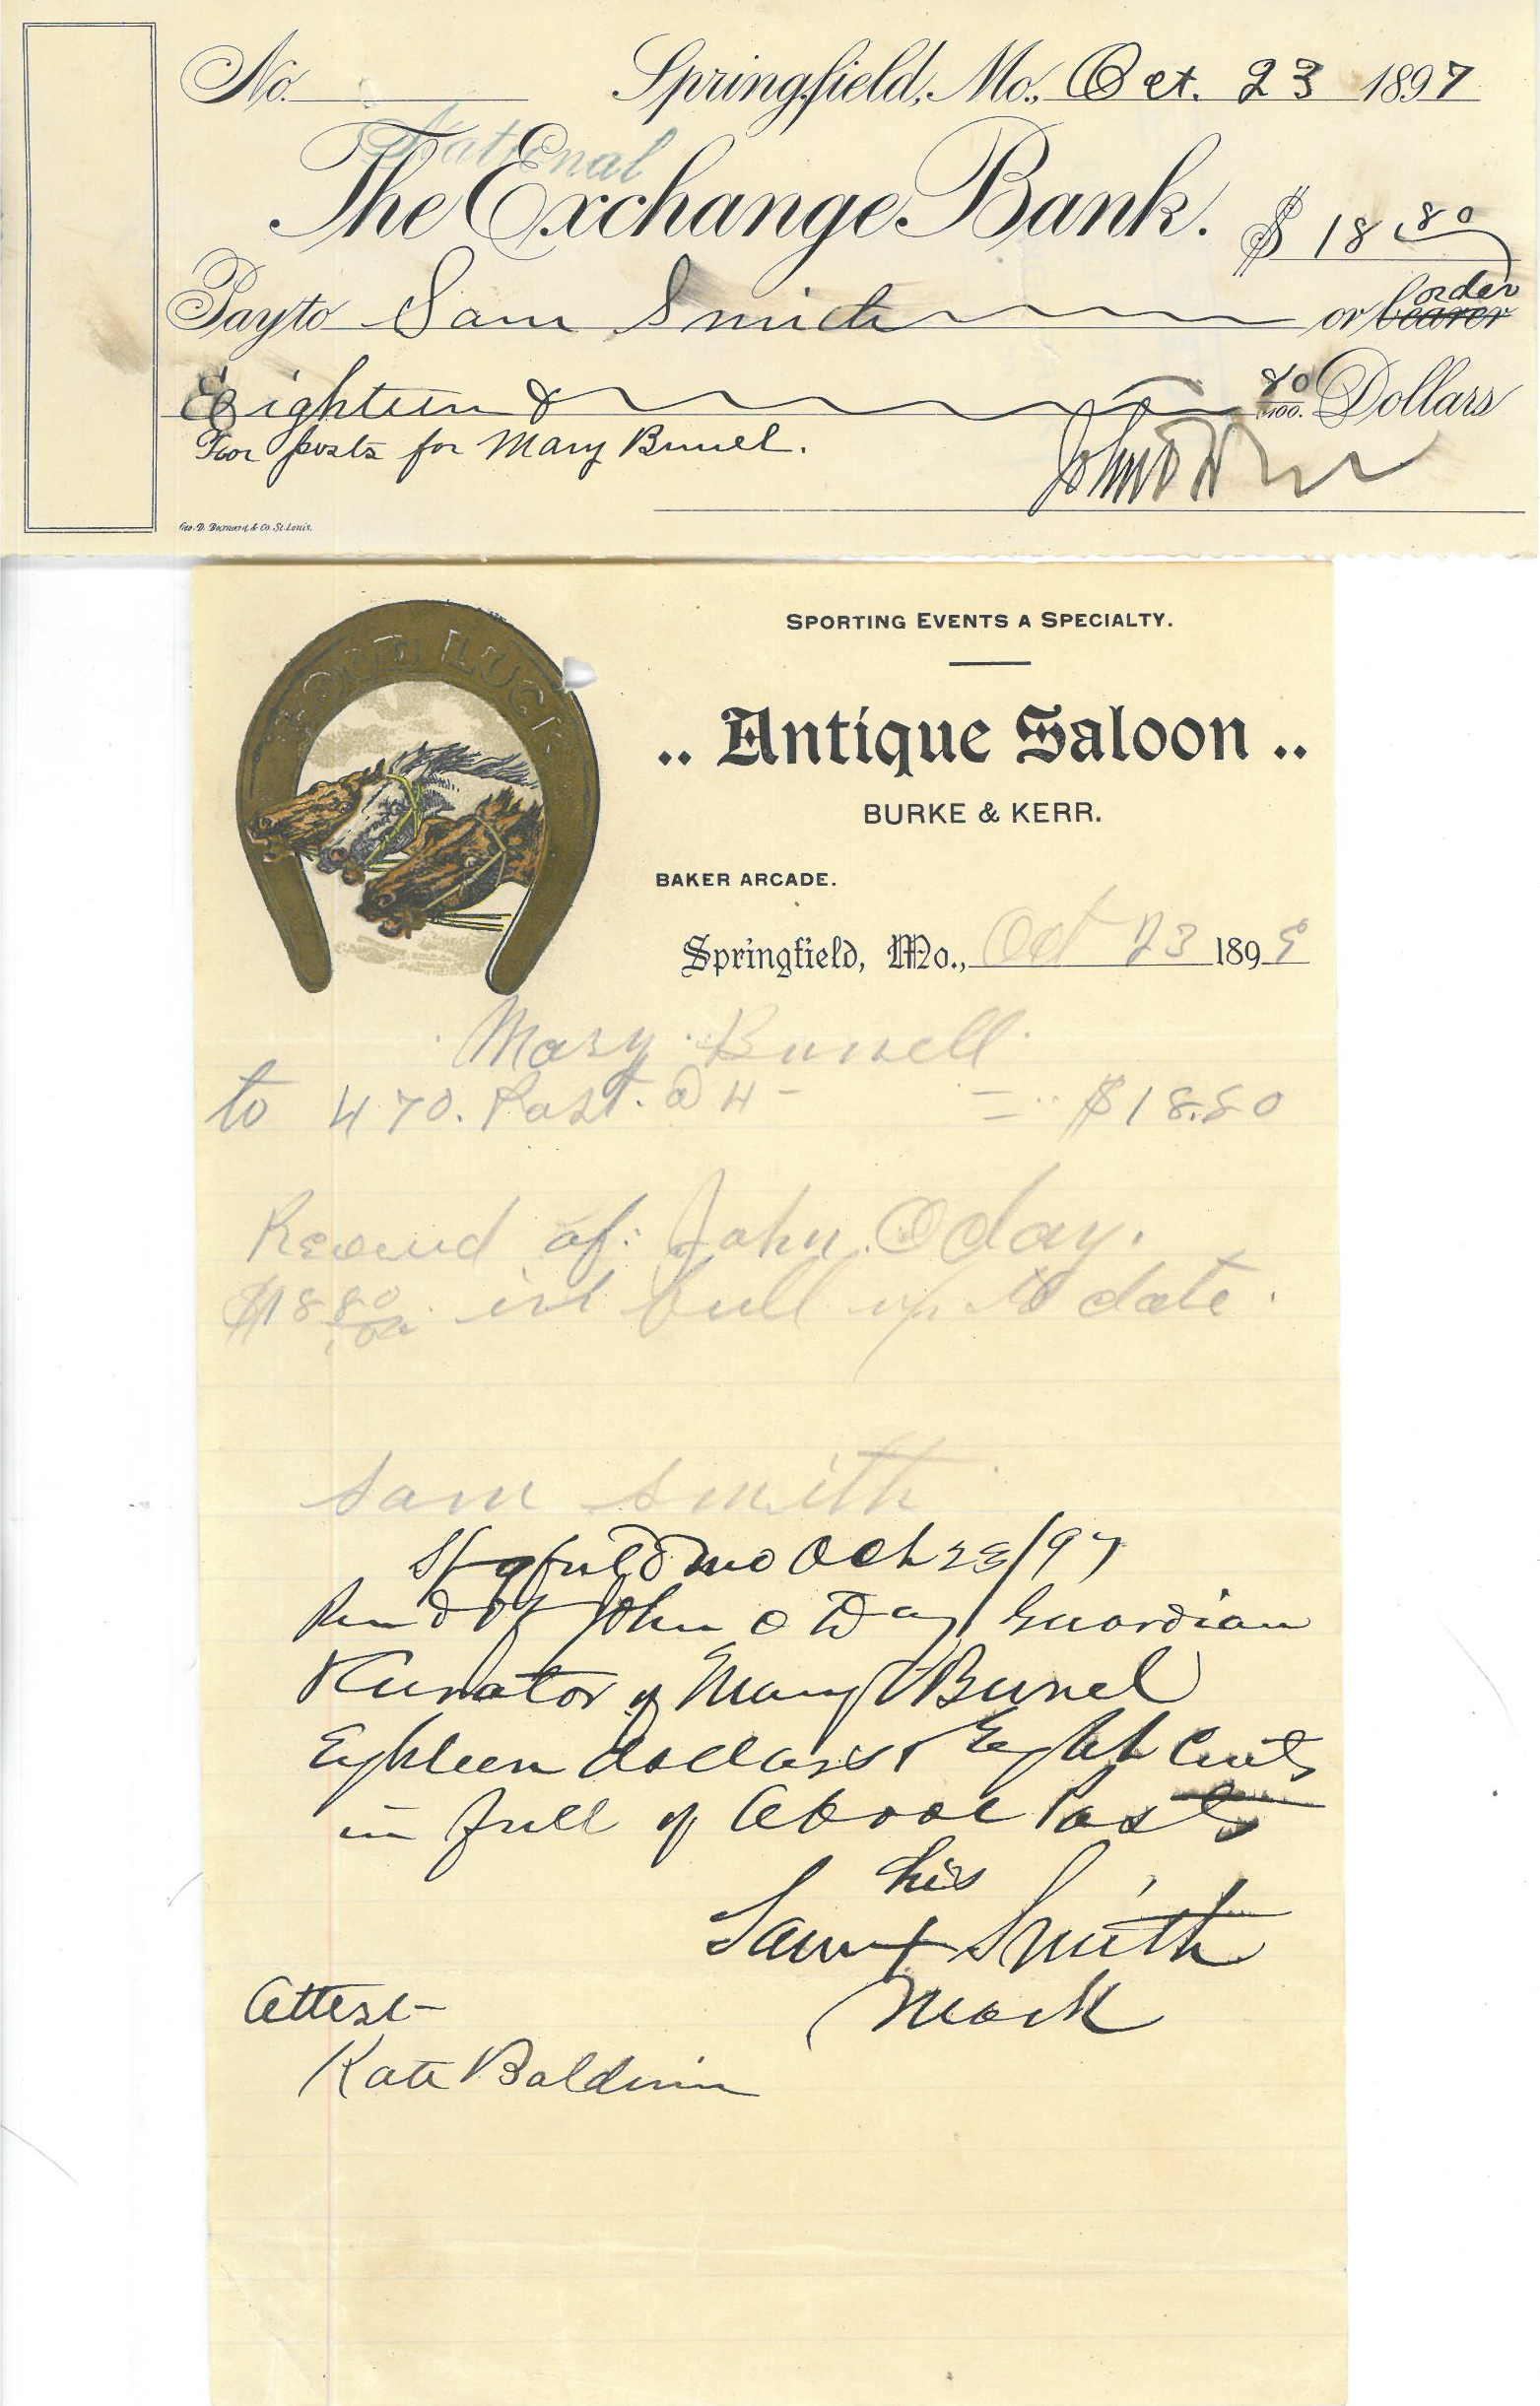 No. Springfield, Mo., Oct. 23 1897
National
The Exchange Bank. $ 18.80
Pay to Sam Smith or bearer order
Eighteen & 80/100. Dollars
For posts for Mary Bunel.
John O'Day
Geo. D. Barnard & Co. St. Louis.
GOOD LUCK
SPORTING EVENTS A SPECIALTY.
.. Antique Saloon ..
BURKE & KERR.
BAKER ARCADE.
Springfield, Mo., Oct 23 189
Mary Bunell
to 470. Post. @ 4 - = $18.80
of John Oday.
$18 80/100 in full up to date.
Sam Smith
Mo Oct 23/97
of John O Day Guardian
& Curator of Mary Bunel
Eighteen dollars & Eight Cents
in full of above Posts
his
Sam X Smith
Mark
Attest-
Kate Baldwin